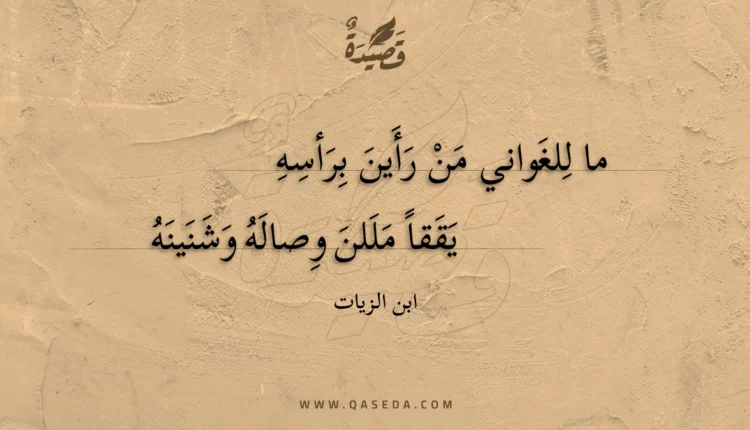 قَصِيدَةٌ
ما لِلغَواني مَنْ رَأَينَ بِرَأسِهِ
يَقَقاً مَلَلنَ وِصالَهُ وَشَنَينَهُ
ابن الزيات
WWW.QASEDA.COM